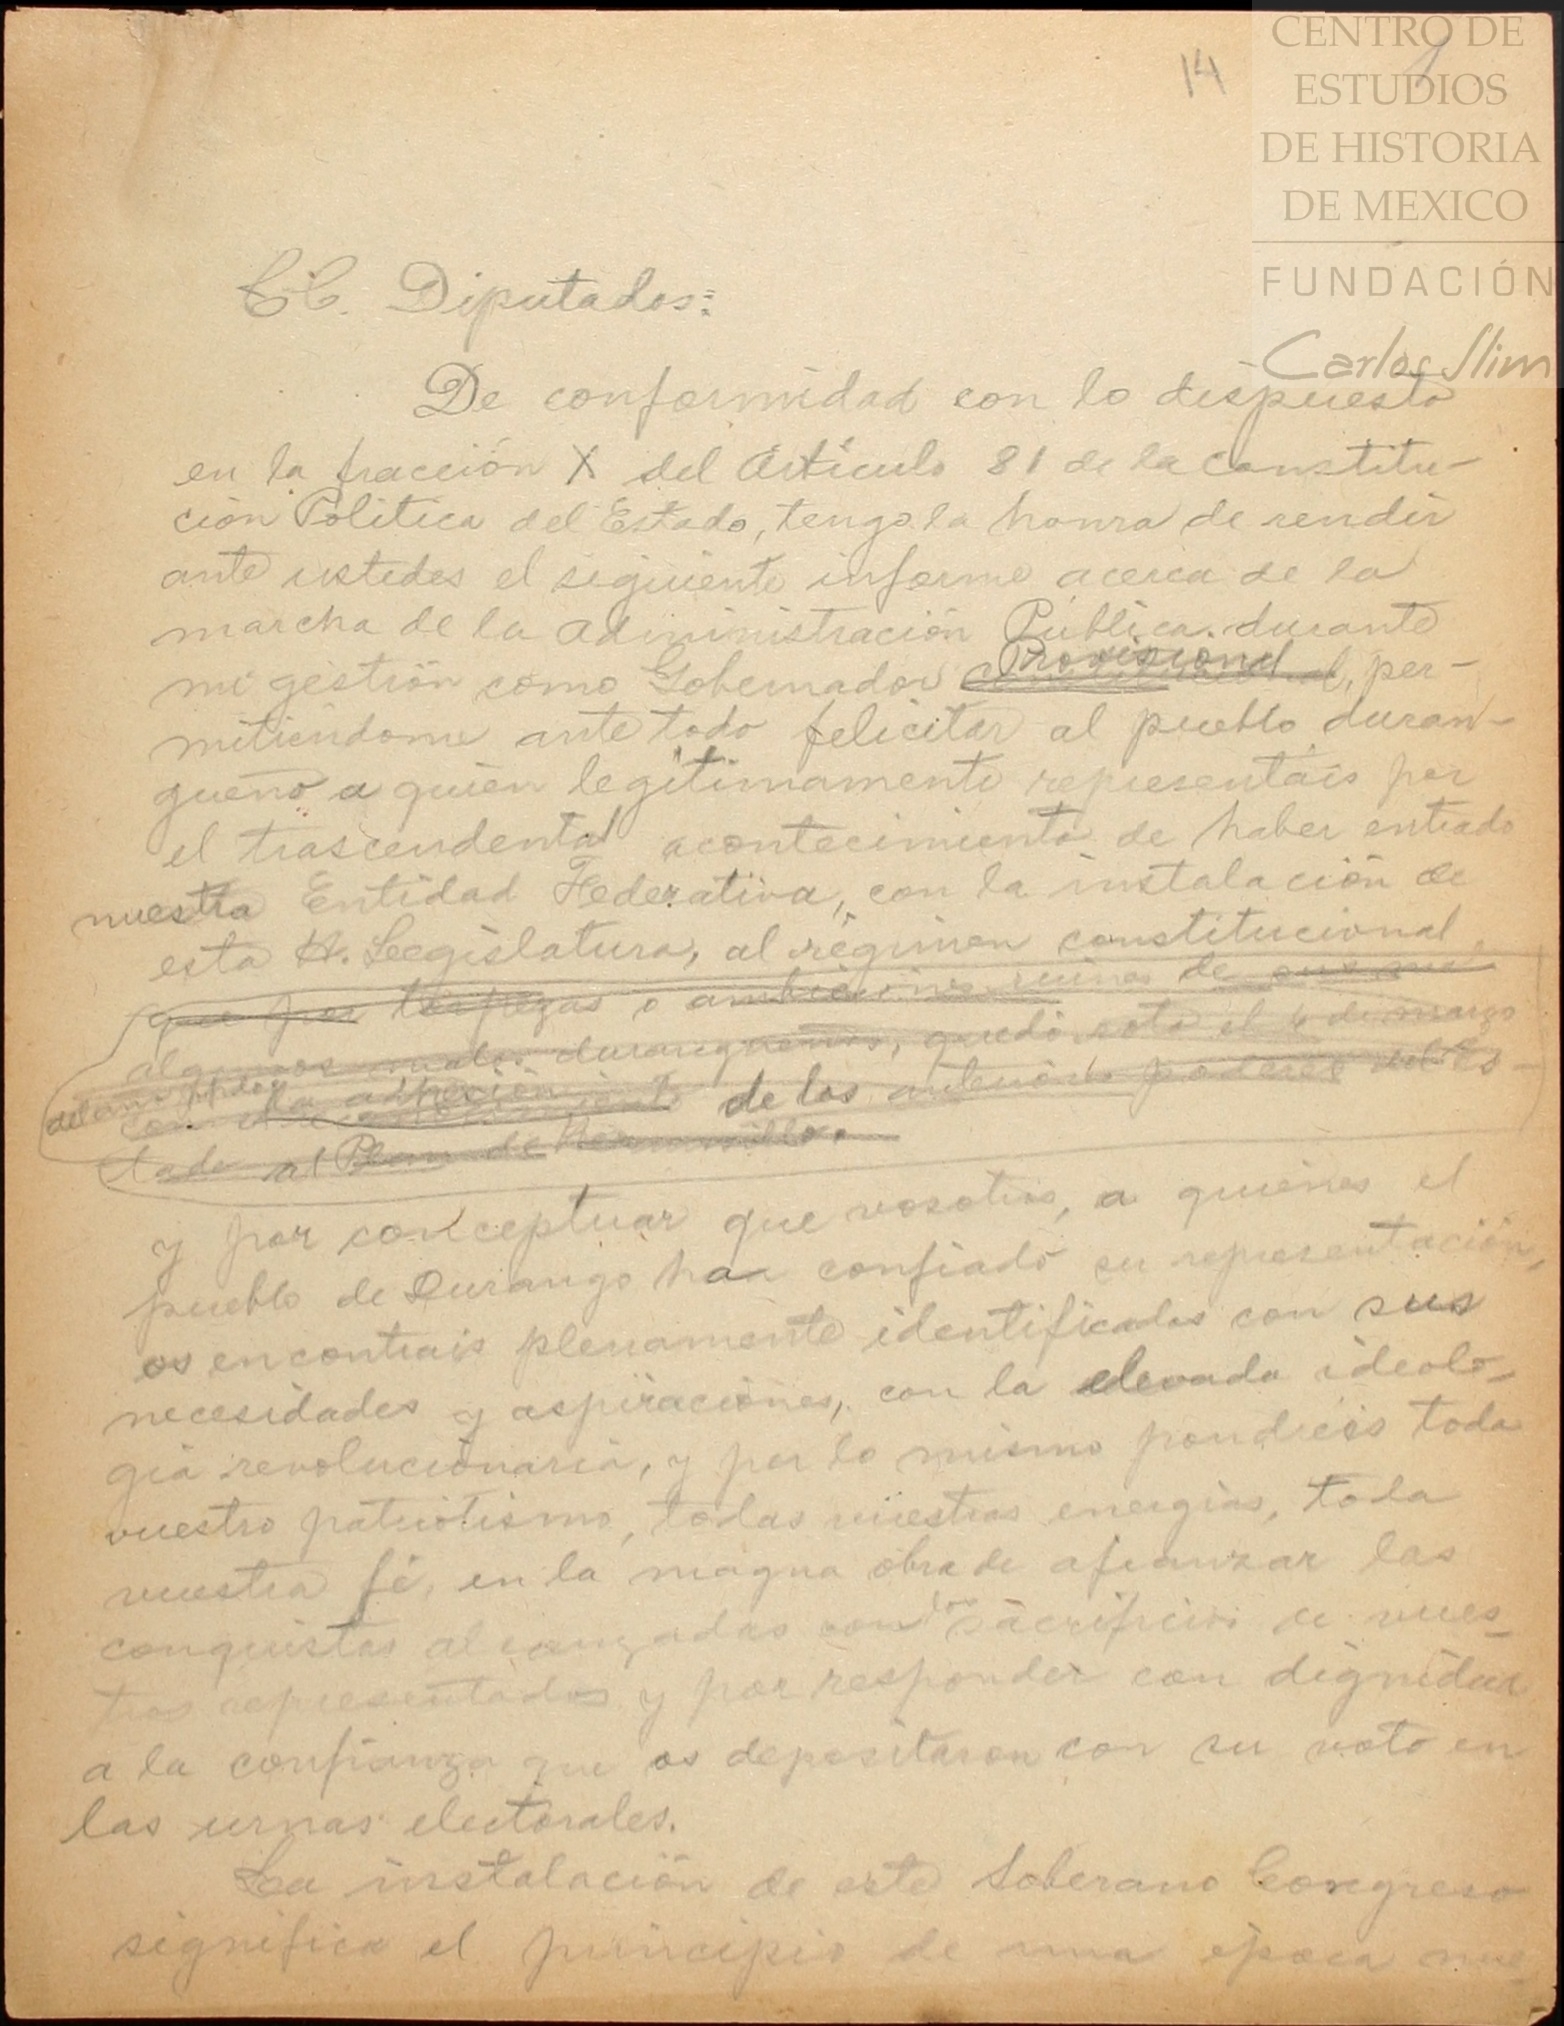 14
1
CENTRO DE
ESTUDIOS
DE HISTORIA
DE MEXICO
FUNDACIÓN
Carlos Slim
CC. Diputados:
De conformidad con lo dispuesto
en la fracción X del Artículo 81 de la Constitu-
ción Política del Estado, tengo la honra de rendir
ante ustedes el siguiente informe acerca de la
marcha de la Administración Pública durante
mi gestión como Gobernador Provisional, per-
mitiéndome ante todo felicitar al pueblo duran-
gueño a quien legítimamente representáis por
el trascendental acontecimiento de haber entrado
nuestra Entidad Federativa, con la instalación de
esta H. Legislatura, al régimen constitucional
que por torpezas o ambiciones ruines de
algunos malos duranguenses, quedó roto el 4 de marzo
del año ppdo. con la adhesión de los anteriores poderes del Es-
tado al Plan de Hermosillo.
y por conceptuar que vosotros, a quienes el
pueblo de Durango ha confiado su representación,
os encontrais plenamente identificados con sus
necesidades y aspiraciones, con la elevada ideolo-
gía revolucionaria, y por lo mismo pondreis todo
vuestro patriotismo, todas vuestras energías, toda
vuestra fé, en la magna obra de afianzar las
conquistas alcanzadas con los sacrificios de vues-
tros representados y por responder con dignidad
a la confianza que os depositaron con su voto en
las urnas electorales.
La instalación de este Soberano Congreso
significa el principio de una época nue-